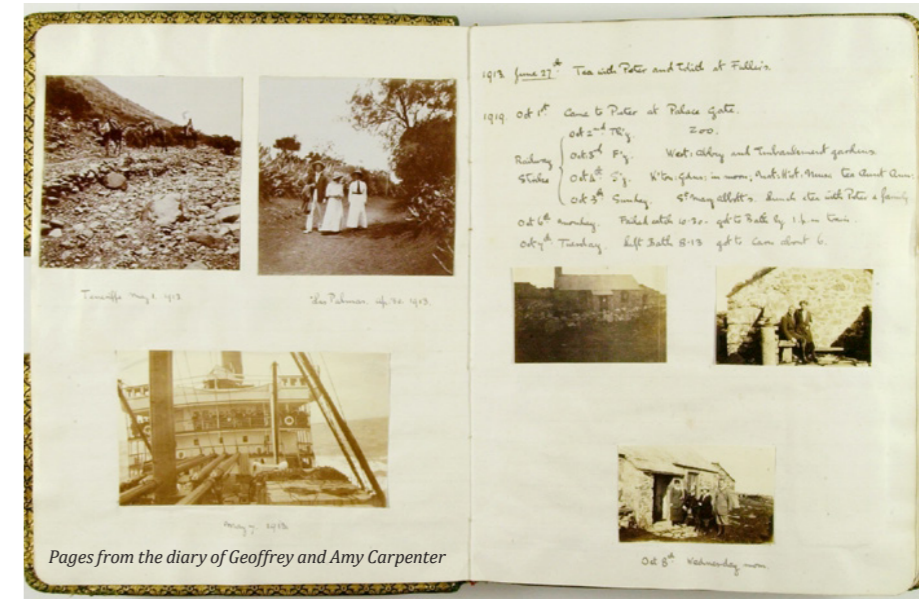 Teneriffe May 2. 1913
Las Palmas. Ap. 30. 1913.
May 7. 1913.
Pages from the diary of Geoffrey and Amy Carpenter
1913. June 27th. Tea with Peter and Edith at
1919. Oct 1st. Came to Peter at Palace Gate.
Oct 2nd Th'y. Zoo.
Railway
Oct 3rd F'y. West. Abbey and Embankment gardens
Strike
Oct 4th S'y. K'ton. Gdns: in morn, Nat. Hist. Mus: tea Aunt
Oct 5th Sunday. St Mary Abbott's. lunch & tea with Peter & family
Oct 6th Monday. got to Bath by train.
Oct 7th Tuesday. left Bath 8.13 got to about 6.
Oct 8th Wednesday morn.